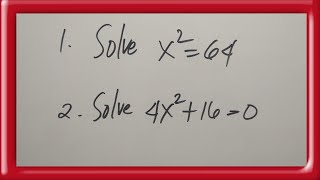 1. Solve x²=64
2. Solve 4x²+16=0